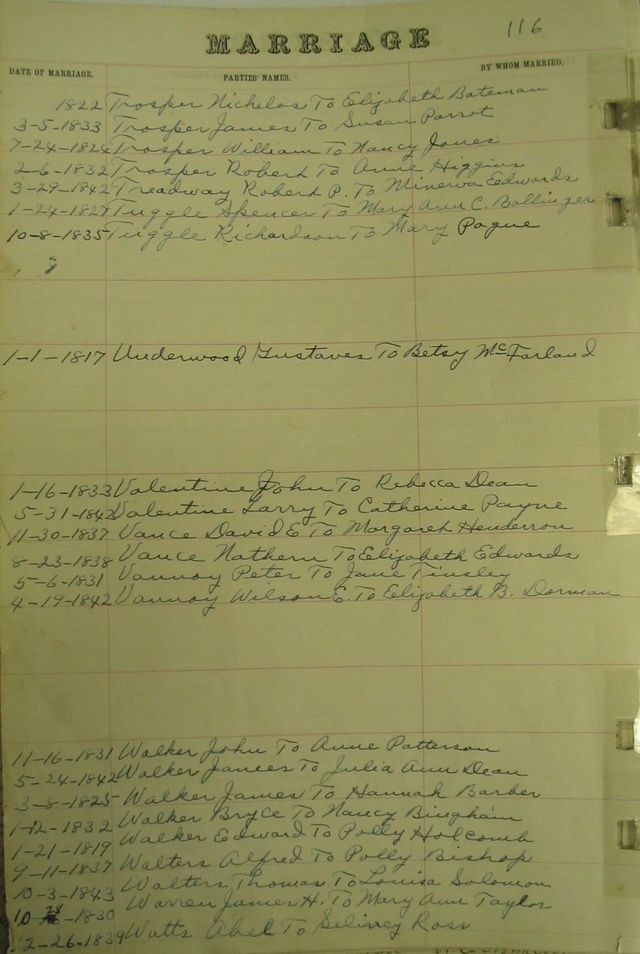 116
MARRIAGE
DATE OF MARRIAGE. PARTIES' NAMES. BY WHOM MARRIED.
1822 Trosper Nichelos To Elizabeth Bateman
3-5-1833 Trosper James To Susan Parrot
7-24-1824 Trosper William To Nancy Jones
2-6-1832 Trosper Robert To Anne Higgins
3-29-1842 Treadway Robert P. To Minerva Edwards
1-24-1827 Tuggle Spencer To Mary Ann C. Ballinger
10-8-1835 Tuggle Richardson To Mary Pogue
1-1-1817 Underwood Gustaves To Betsy McFarland
1-16-1833 Valentine John To Rebecca Dean
5-31-1842 Valentine Larry To Catherine Payne
11-30-1837 Vance David E To Margaret Henderson
8-23-1838 Vance Nathern To Elizabeth Edwards
5-6-1831 Vannoy Peter To Jane Tinsley
4-19-1842 Vannoy Wilson E. To Elizabeth B. Dorman
11-16-1831 Walker John To Anne Patterson
5-24-1842 Walker James To Julia Ann Dean
3-8-1825 Walker James To Hannah Barber
1-12-1832 Walker Bryce To Nancy Bingham
1-21-1819 Walker Edward To Polly Holcomb
9-11-1837 Walters Alfred To Polly Bishop
10-3-1843 Walters Thomas To Louisa Solomon
10-28-1830 Warren James H. To Mary Ann Taylor
12-26-1839 Watts Abel To Seliney Ross